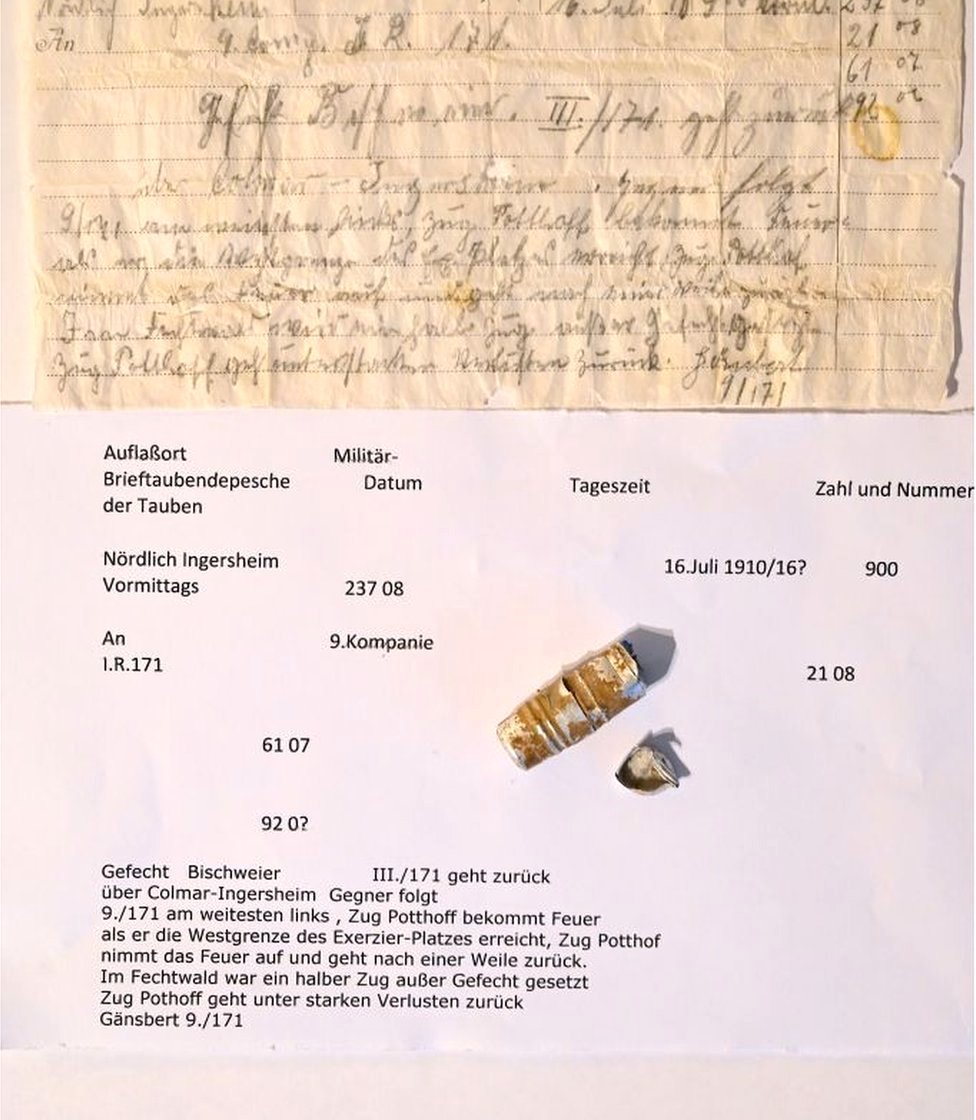 Nördlich Ingersheim 16. Juli 19 900 vorm. 237 08
An 9. Comp. I. R. 171. 21 08
61 07
92 0
Gefecht III./171. geht zurück
über Colmar – Ingersheim. Gegner folgt
9/171 am weitesten links, Zug Potthoff bekommt Feuer
als er die Westgrenze des Ex. Platzes erreicht, Zug Potthof
nimmt das Feuer auf und geht nach einer Weile zurück.
Im Fechtwald halber Zug außer Gefecht gesetzt
Zug Potthoff geht unter starken Verlusten zurück.
9/171
Auflaßort Militär-
Brieftaubendepesche Datum Tageszeit Zahl und Nummer
der Tauben
Nördlich Ingersheim 16.Juli 1910/16? 900
Vormittags 237 08
An 9.Kompanie
I.R.171 21 08
61 07
92 0?
Gefecht Bischweier III./171 geht zurück
über Colmar-Ingersheim Gegner folgt
9./171 am weitesten links , Zug Potthoff bekommt Feuer
als er die Westgrenze des Exerzier-Platzes erreicht, Zug Potthof
nimmt das Feuer auf und geht nach einer Weile zurück.
Im Fechtwald war ein halber Zug außer Gefecht gesetzt
Zug Pothoff geht unter starken Verlusten zurück
Gänsbert 9./171